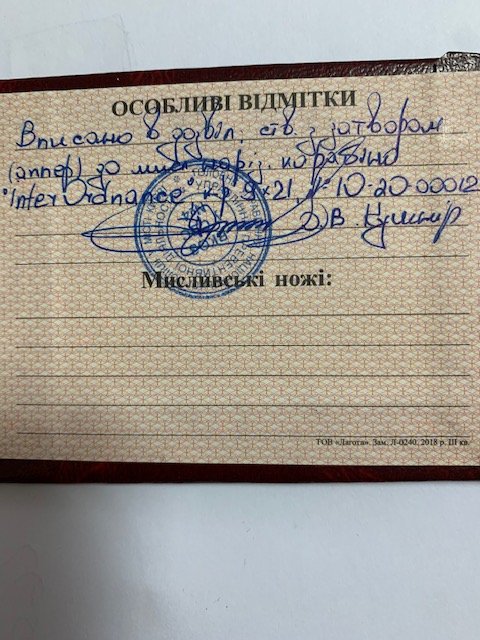 ОСОБЛИВІ ВІДМІТКИ
Вписано в дозвіл, ств. з затвором
(аппер) до мисл. наріз. карабіна
"InterOrdnance" к. 9×21, № 10-20 00012
Д.В. Кушнір
Мисливські ножі:
ТОВ «Лагота». Зам. Л-0240, 2018 р. III кв.